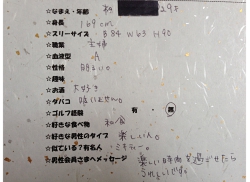 ☆なまえ・年齢 29才
☆身長 169cm
☆スリーサイズ B84 W63 H90
☆職業 主婦
☆血液型 A
☆性格 明るい。
☆趣味
☆お酒 大好き
☆タバコ 吸いません。
☆ゴルフ経験 有 無
☆好きな食べ物 和食
☆好きな男性のタイプ 楽しい人。
☆似ている?有名人
☆男性会員さまへメッセージ 楽しい時間を過ごせたら
うれしいです。